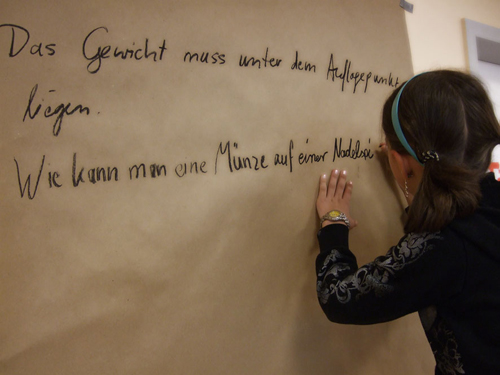 Das Gewicht muss unter dem Auflagepunkt
liegen.
Wie kann man eine Münze auf einer Nadelspi